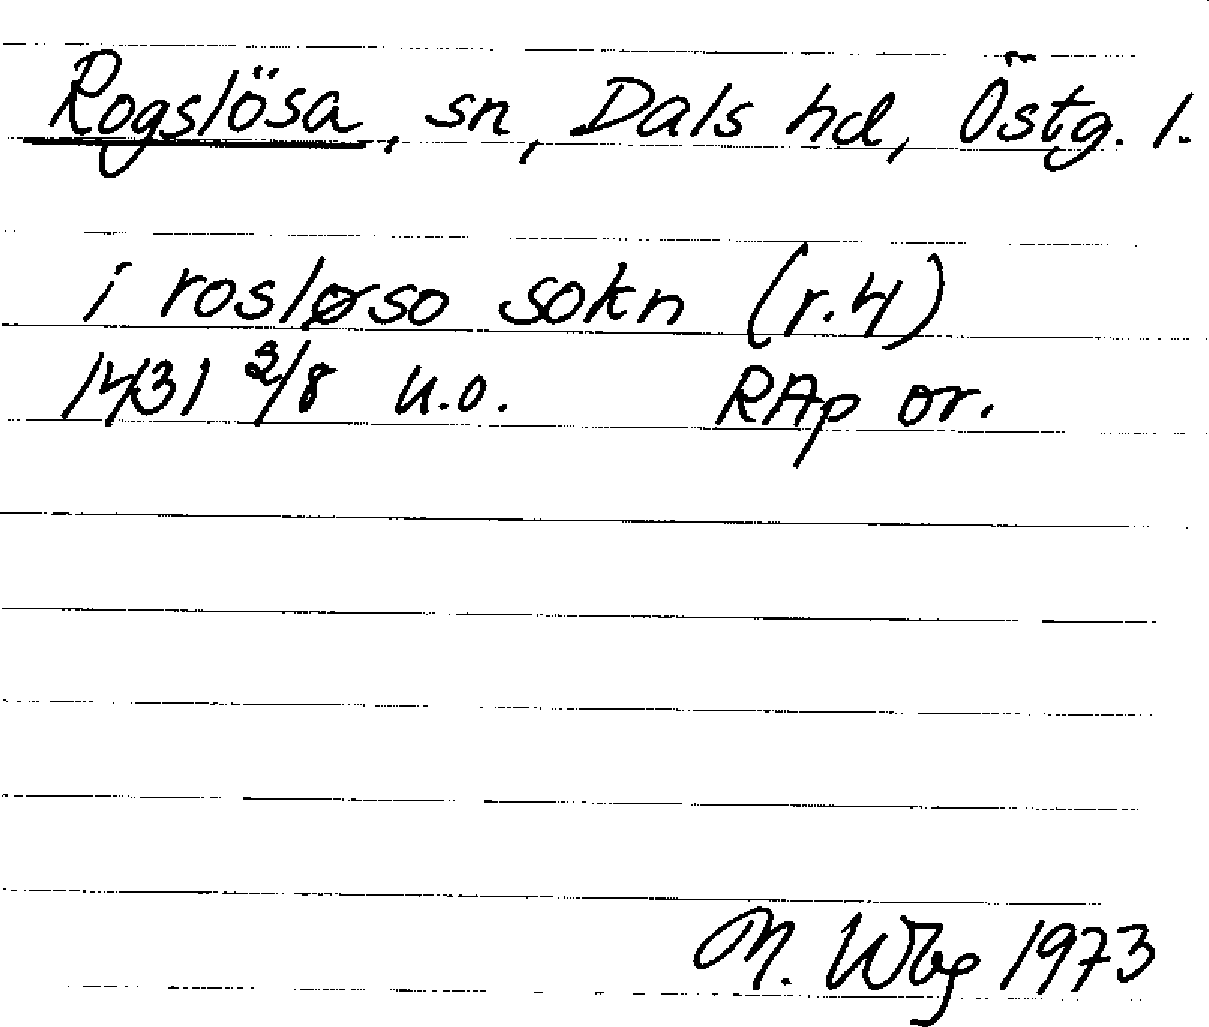 Rogslösa, sn, Dals hd, Östg. l.
i rosløso sokn (r.4)
1431 2/8 u.o. RAp or.
M. Wbg 1973